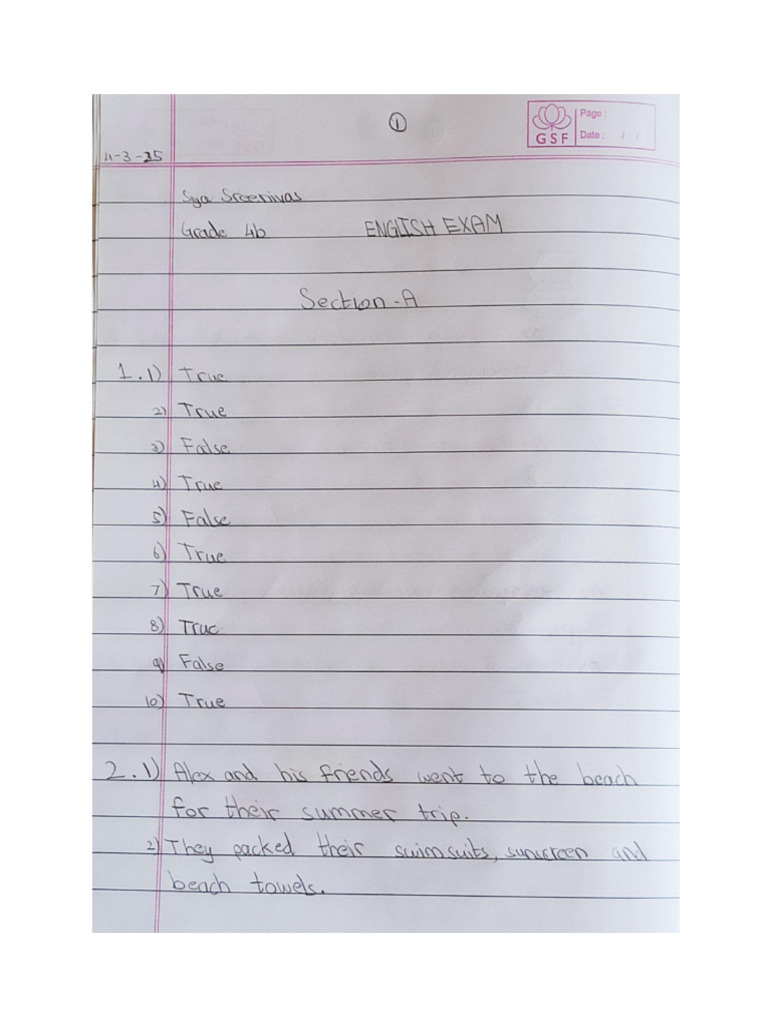 ①
GSF
Page :
Date : / /
11-3-25
Siya Sreenivas
Grade 4b ENGLISH EXAM
Section-A
1.1) True
2) True
3) False
4) True
5) False
6) True
7) True
8) True
9) False
10) True
2.1) Alex and his friends went to the beach
for their summer trip.
2) They packed their swimsuits, sunscreen and
beach towels.